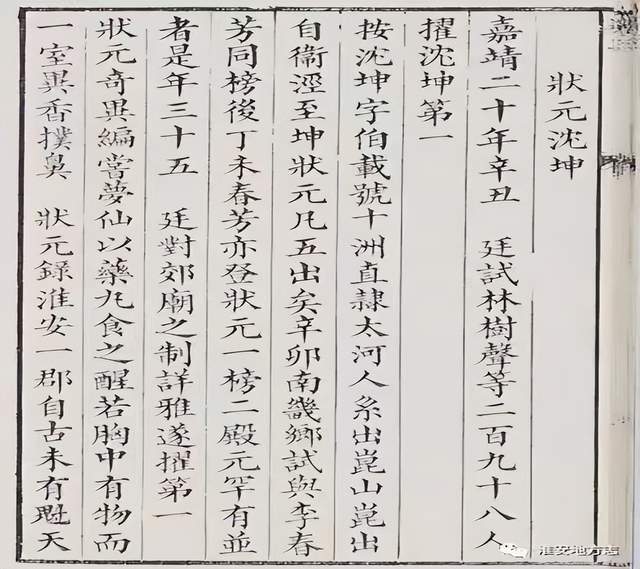 狀元沈坤
嘉靖二十年辛丑　廷試林樹聲等二百九十八人
擢沈坤第一
按沈坤字伯載號十洲直隷太河人系出崑山崑出
自衞涇至坤狀元凡五出矣辛卯南畿鄉試與李春
芳同榜後丁未春芳亦登狀元一榜二殿元罕有並
者是年三十五　廷對郊廟之制詳雅遂擢第一
狀元奇異編嘗夢仙以藥丸食之醒若胸中有物而
一室異香撲鼻　狀元錄淮安一郡自古未有魁天
淮安地方志